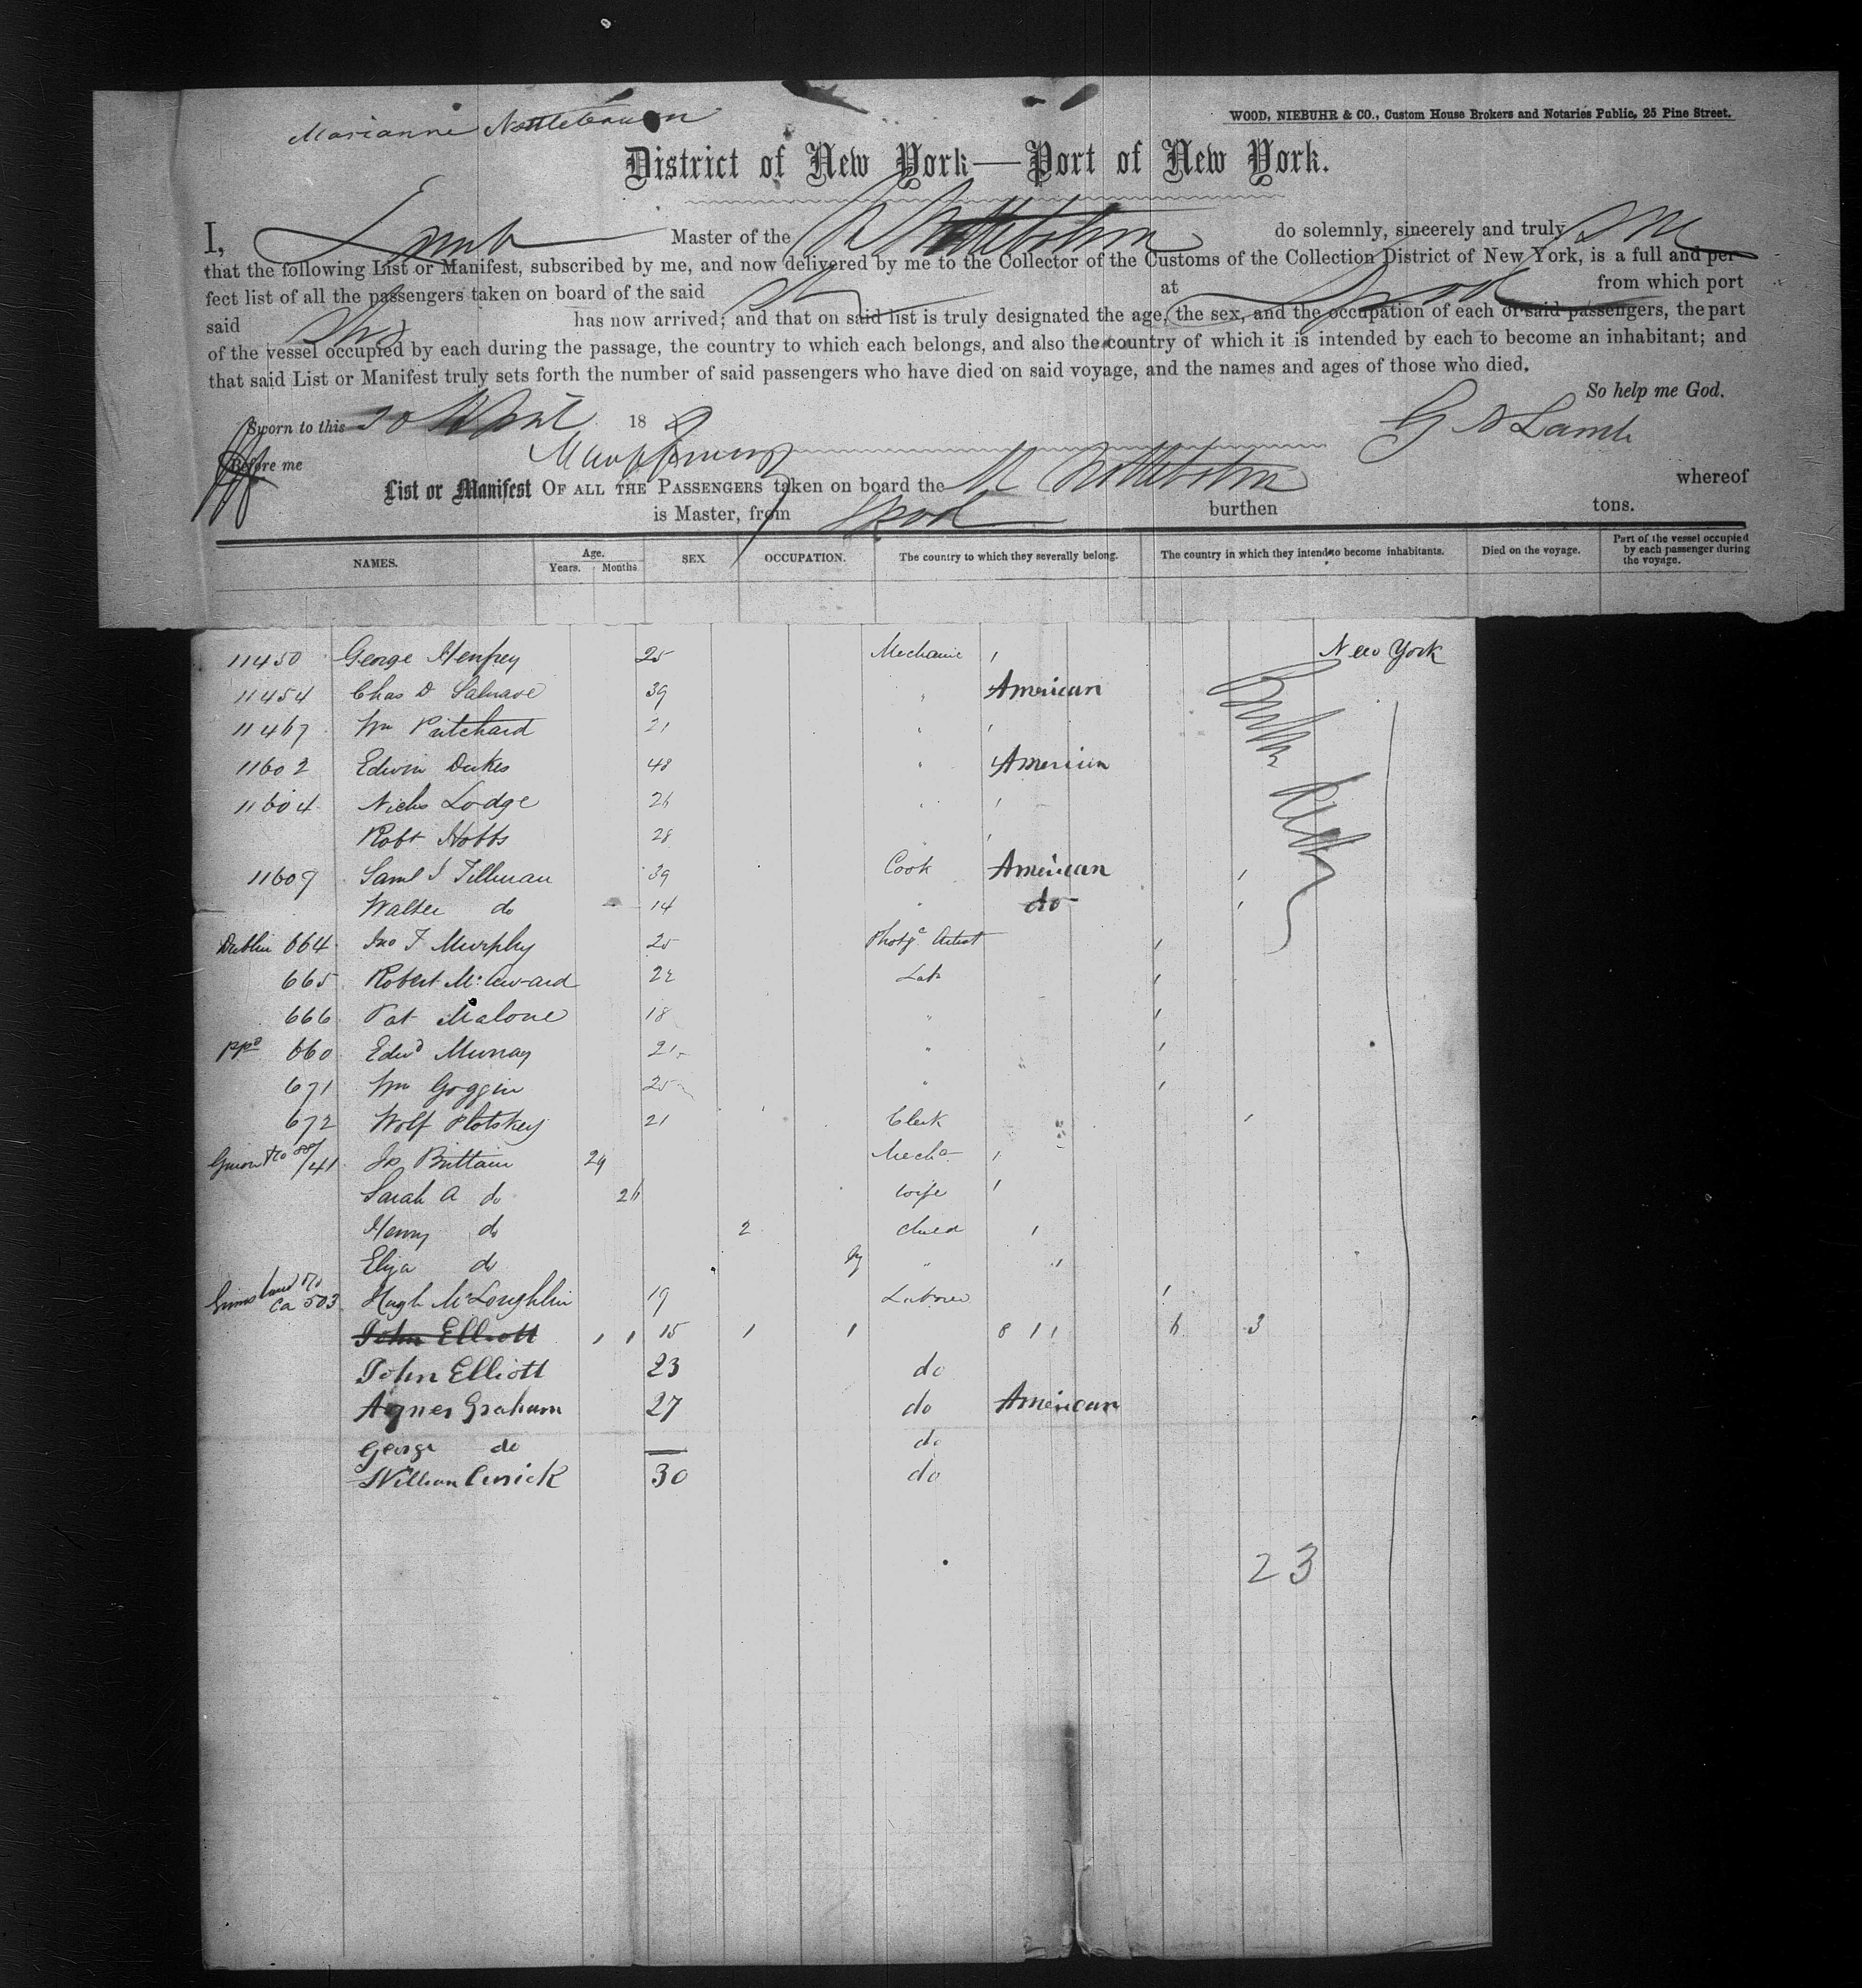 Marianne Nottlebaum
WOOD, NIEBUHR & CO., Custom House Brokers and Notaries Public, 25 Pine Street.
District of New York—Port of New York.
I, Lamb Master of the Nottebohm do solemnly, sincerely and truly
that the following List or Manifest, subscribed by me, and now delivered by me to the Collector of the Customs of the Collection District of New York, is a full and per-
fect list of all the passengers taken on board of the said at Lpool from which port
said has now arrived; and that on said list is truly designated the age, the sex, and the occupation of each of said passengers, the part
of the vessel occupied by each during the passage, the country to which each belongs, and also the country of which it is intended by each to become an inhabitant; and
that said List or Manifest truly sets forth the number of said passengers who have died on said voyage, and the names and ages of those who died.
So help me God.
Sworn to this 20 18 G Lamb
Before me
List or Manifest OF ALL THE PASSENGERS taken on board the M Nottebohm whereof
is Master, from Lpool burthen tons.
NAMES. Age. Years. Months SEX OCCUPATION. The country to which they severally belong. The country in which they intend to become inhabitants. Died on the voyage. Part of the vessel occupied by each passenger during the voyage.
11450 George Henfrey 25 Mechanic New York
11454 Chas D Salnave 39 " American
11467 Wm Pritchard 21 "
11602 Edwin Dukes 48 " American
11604 Nichs Lodge 26 "
Robt Hobbs 28
11609 Saml J Tillman 39 Cook American
Walter do 14 " do
Dublin 664 Jno F Murphy 25 Photgc Artist
665 Robert 22 Lab
666 Pat Malone 18 "
PPd 660 Edwd Murray 21 "
671 Wm Goggin 25 "
672 Wolf Plotskey 21 Clerk
41 Jas Brittain 29 Mecha
Sarah A do 26 wife
Henry do 2 child
Eliza do "
Ca 503 Hugh McLoughlin 19 Laborer
John Elliott 1 1 15 1 1 8 1 1 6 3
John Elliott 23 do
Agnes Graham 27 do American
George do — do
William Cusick 30 do
23